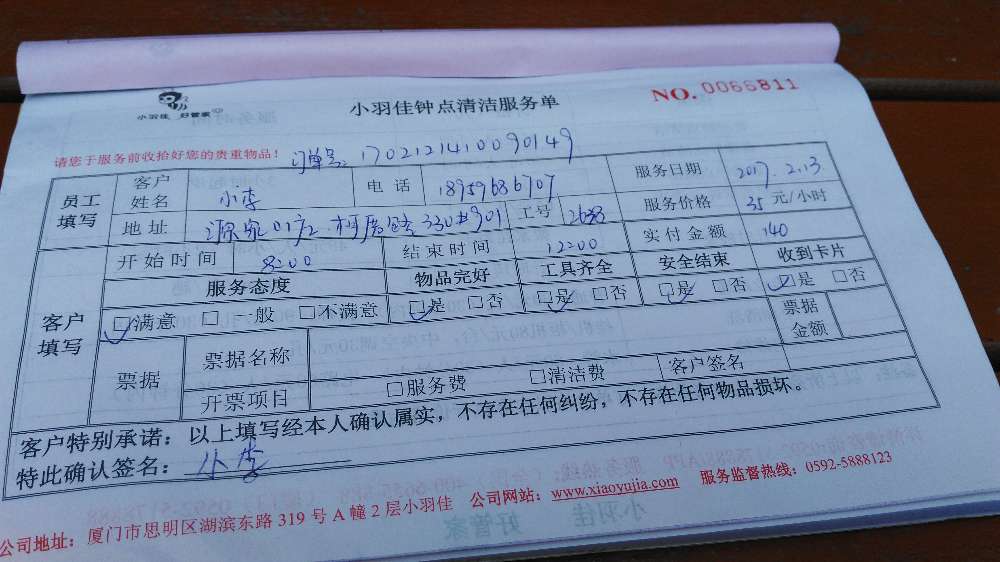 小羽佳 好管家
小羽佳钟点清洁服务单
NO. 0066811
请您于服务前收拾好您的贵重物品！
订单号: 1702121410090149
员工填写 客户姓名 小李 电话 18959686707 服务日期 2017.2.13
地址 330#901 工号 服务价格 35 元/小时
开始时间 8:00 结束时间 12:00 实付金额 140
客户填写 服务态度 物品完好 工具齐全 安全结束 收到卡片
☑满意 □一般 □不满意 ☑是 □否 ☑是 □否 ☑是 □否 ☑是 □否
票据 票据名称 票据金额
开票项目 □服务费 □清洁费 客户签名
客户特别承诺：以上填写经本人确认属实，不存在任何纠纷，不存在任何物品损坏。
特此确认签名：小李
公司地址：厦门市思明区湖滨东路 319 号 A 幢 2 层小羽佳 公司网站：www.xiaoyujia.com 服务监督热线：0592-5888123